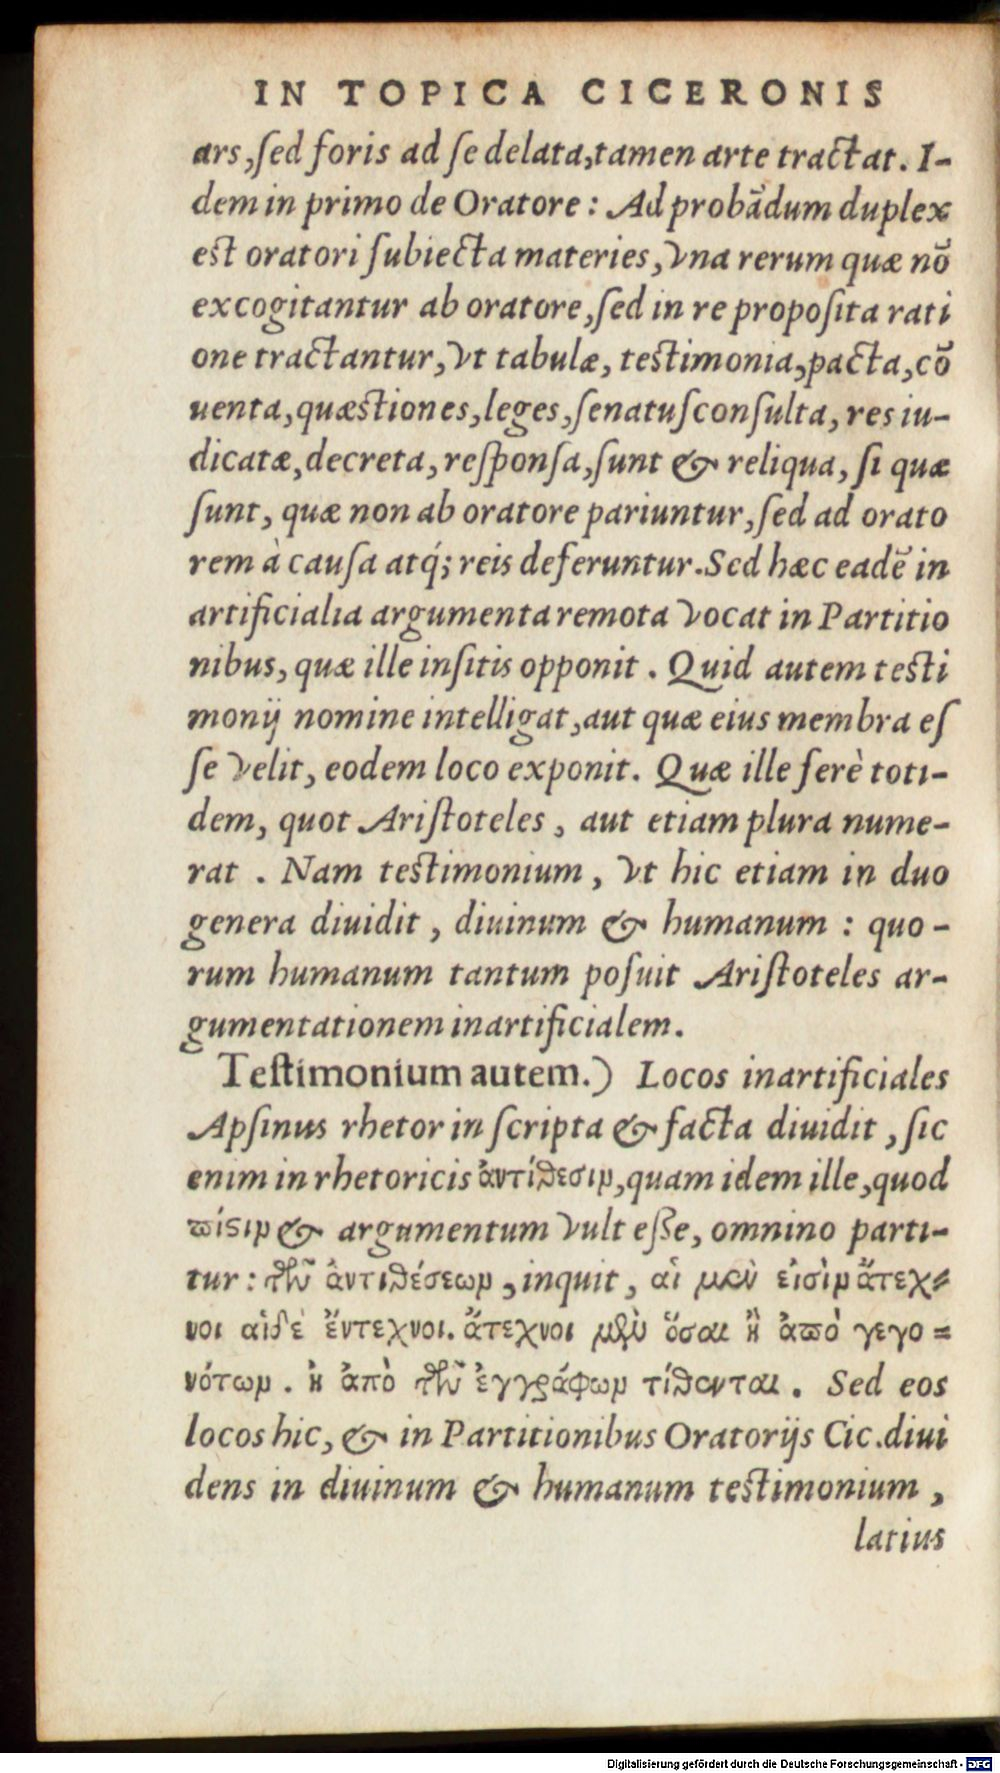 IN TOPICA CICERONIS
ars, ſed foris ad ſe delata, tamen arte tractat. I-
dem in primo de Oratore: Ad probãdum duplex
est oratori ſubiecta materies, vna rerum quæ nõ
excogitantur ab oratore, ſed in re propoſita rati
one tractantur, vt tabulæ, testimonia, pacta, cõ
uenta, quæstiones, leges, ſenatuſconſulta, res iu-
dicatæ, decreta, reſponſa, ſunt & reliqua, ſi quæ
ſunt, quæ non ab oratore pariuntur, ſed ad orato
rem à cauſa atq́; reis deferuntur. Sed hæc eadẽ in
artificialia argumenta remota vocat in Partitio
nibus, quæ ille inſitis opponit. Quid autem testi
monij nomine intelligat, aut quæ eius membra eſ
ſe velit, eodem loco exponit. Quæ ille ferè toti-
dem, quot Ariſtoteles, aut etiam plura nume-
rat. Nam testimonium, vt hic etiam in duo
genera diuidit, diuinum & humanum: quo-
rum humanum tantum poſuit Ariſtoteles ar-
gumentationem inartificialem.
Teſtimonium autem.) Locos inartificiales
Apſinus rhetor in ſcripta & facta diuidit, ſic
enim in rhetoricis ἀντίθεσιν, quam idem ille, quod
πίϛιν & argumentum vult eſſe, omnino parti-
tur: τῶν ἀντιθέσεων, inquit, αἱ μὲν εἰσὶν ἄτεχ-
νοι αἱ δὲ ἔντεχνοι. ἄτεχνοι μὲν ὅσαι ἢ ἀπὸ γεγο-
νότων. ἢ ἀπὸ τῶν ἐγγράφων τίθενται. Sed eos
locos hic, & in Partitionibus Oratorijs Cic. diui
dens in diuinum & humanum testimonium,
latius
Digitalisierung gefördert durch die Deutsche Forschungsgemeinschaft - DFG